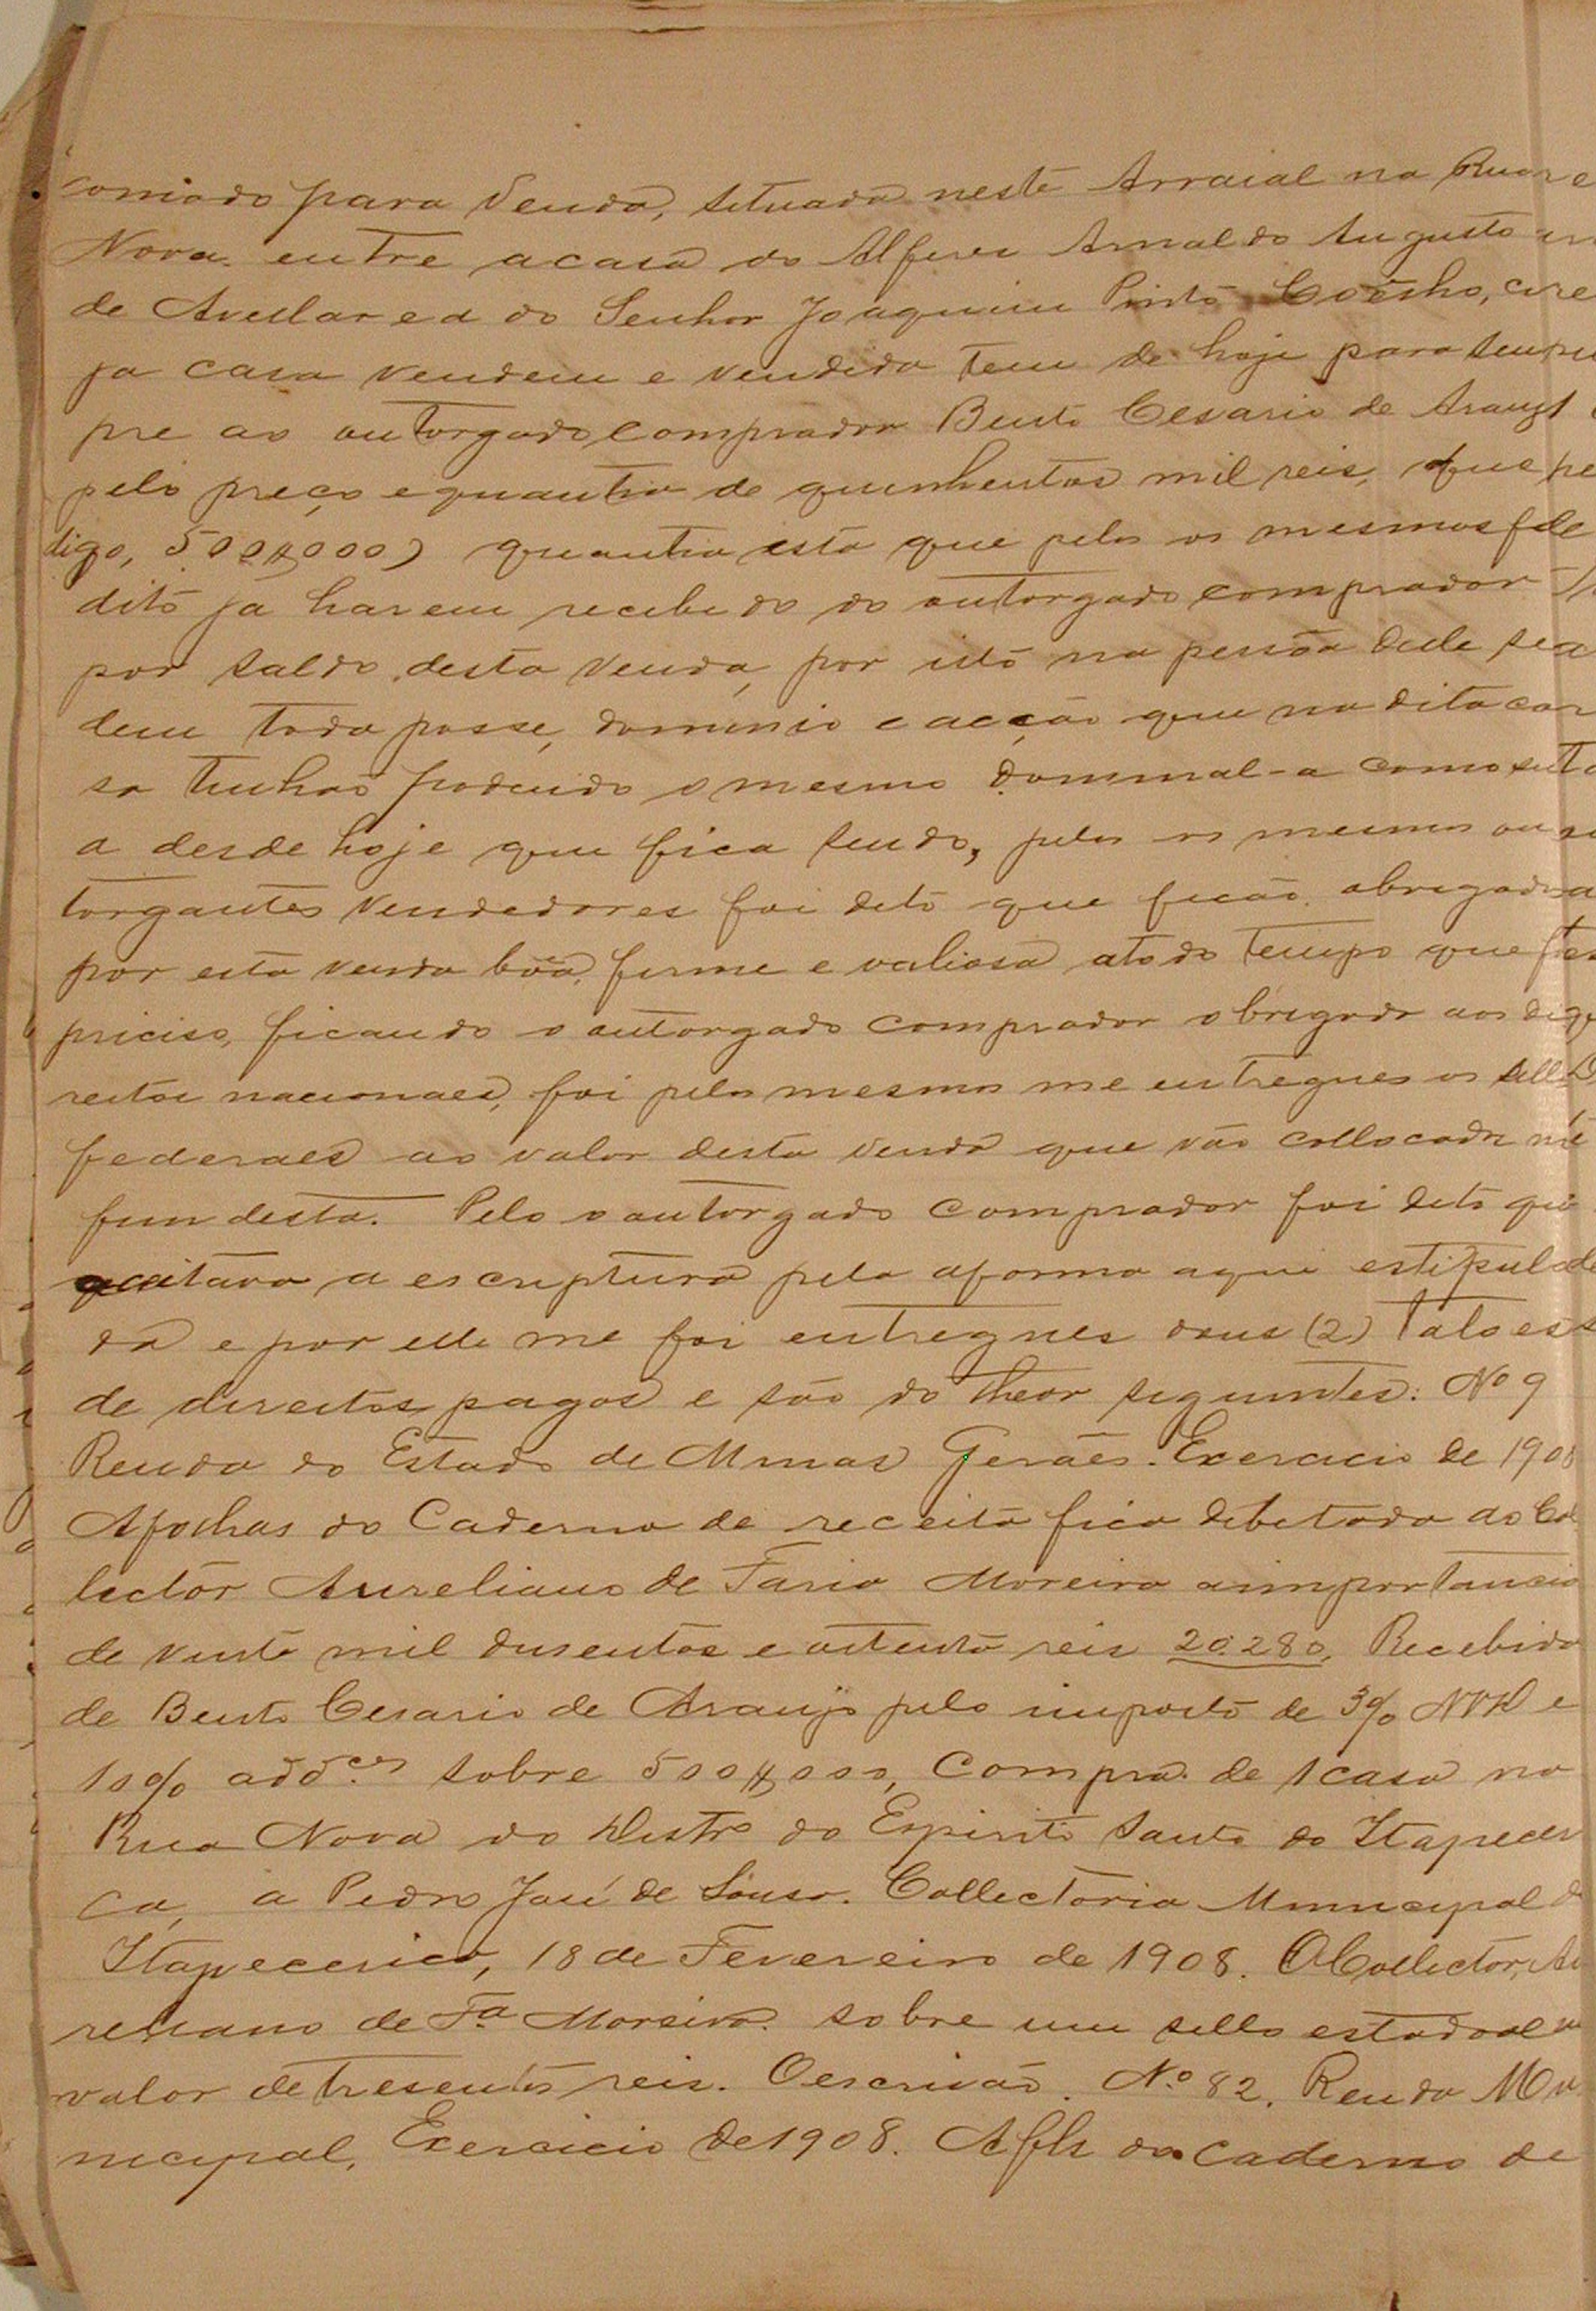 comodo para venda, situada neste Arraial na Rua
Nova entre a casa do Alferes Arnaldo Augusto
de Avellar e a do Senhor Joaquim Pinto Coêlho, cu
ja casa vendem e vendida tem de hoje para sem
pre ao outorgado comprador Bento Cesario de Araujo
pelo preço e quantia de quinhentos mil reis, que
digo, 500$000) quantia esta que pelos os mesmos foi
dito já haverem recebido do outorgado comprador
por saldo desta venda, por isto na pessôa delle ce
dem toda posse, dominio e acção que na dita ca
sa tinhão podendo o mesmo dominal-a como sua
a desde hoje que fica sendo, pelos os mesmos ou
torgantes vendedores foi dito que ficão obrigados
por esta venda bôa, firme e valiosa a todo tempo que for
preciso, ficando o outorgado comprador obrigado aos di
reitos nacionaes, foi pelos mesmos me entregues os sellos
federaes ao valor desta venda que vão collocados no
fim desta. Pelo o outorgado comprador foi dito que
aceitava a escriptura pela a forma aqui estipula
da e por elle me foi entregues dous (2) Talões
de direitos pagos e são do theor seguintes: Nº 9
Renda do Estado de Minas Geráes. Exercicio de 1908
Afolhas do Caderno de receita fica debitada ao Col
lector Aureliano de Faria Moreira a importancia
de vinte mil dusentos e oitenta reis 20.280, Recebido
de Bento Cesario de Araujo pelo imposto de 3% NVD e
10% add.es sobre 500$000, Compra de 1 casa na
Rua Nova do Distro do Espirito Santo do Itapeceri
ca, a Pedro José de Sousa. Collectoria Municipal de
Itapecerica, 18 de Fevereiro de 1908. O Collector, Au
reliano de Fa Moreira. sobre um sello estadoal no
valor de tresentos reis. O escrivão. N.o 82. Renda Mu
nicipal, Exercicio de 1908. A fls do Caderno de